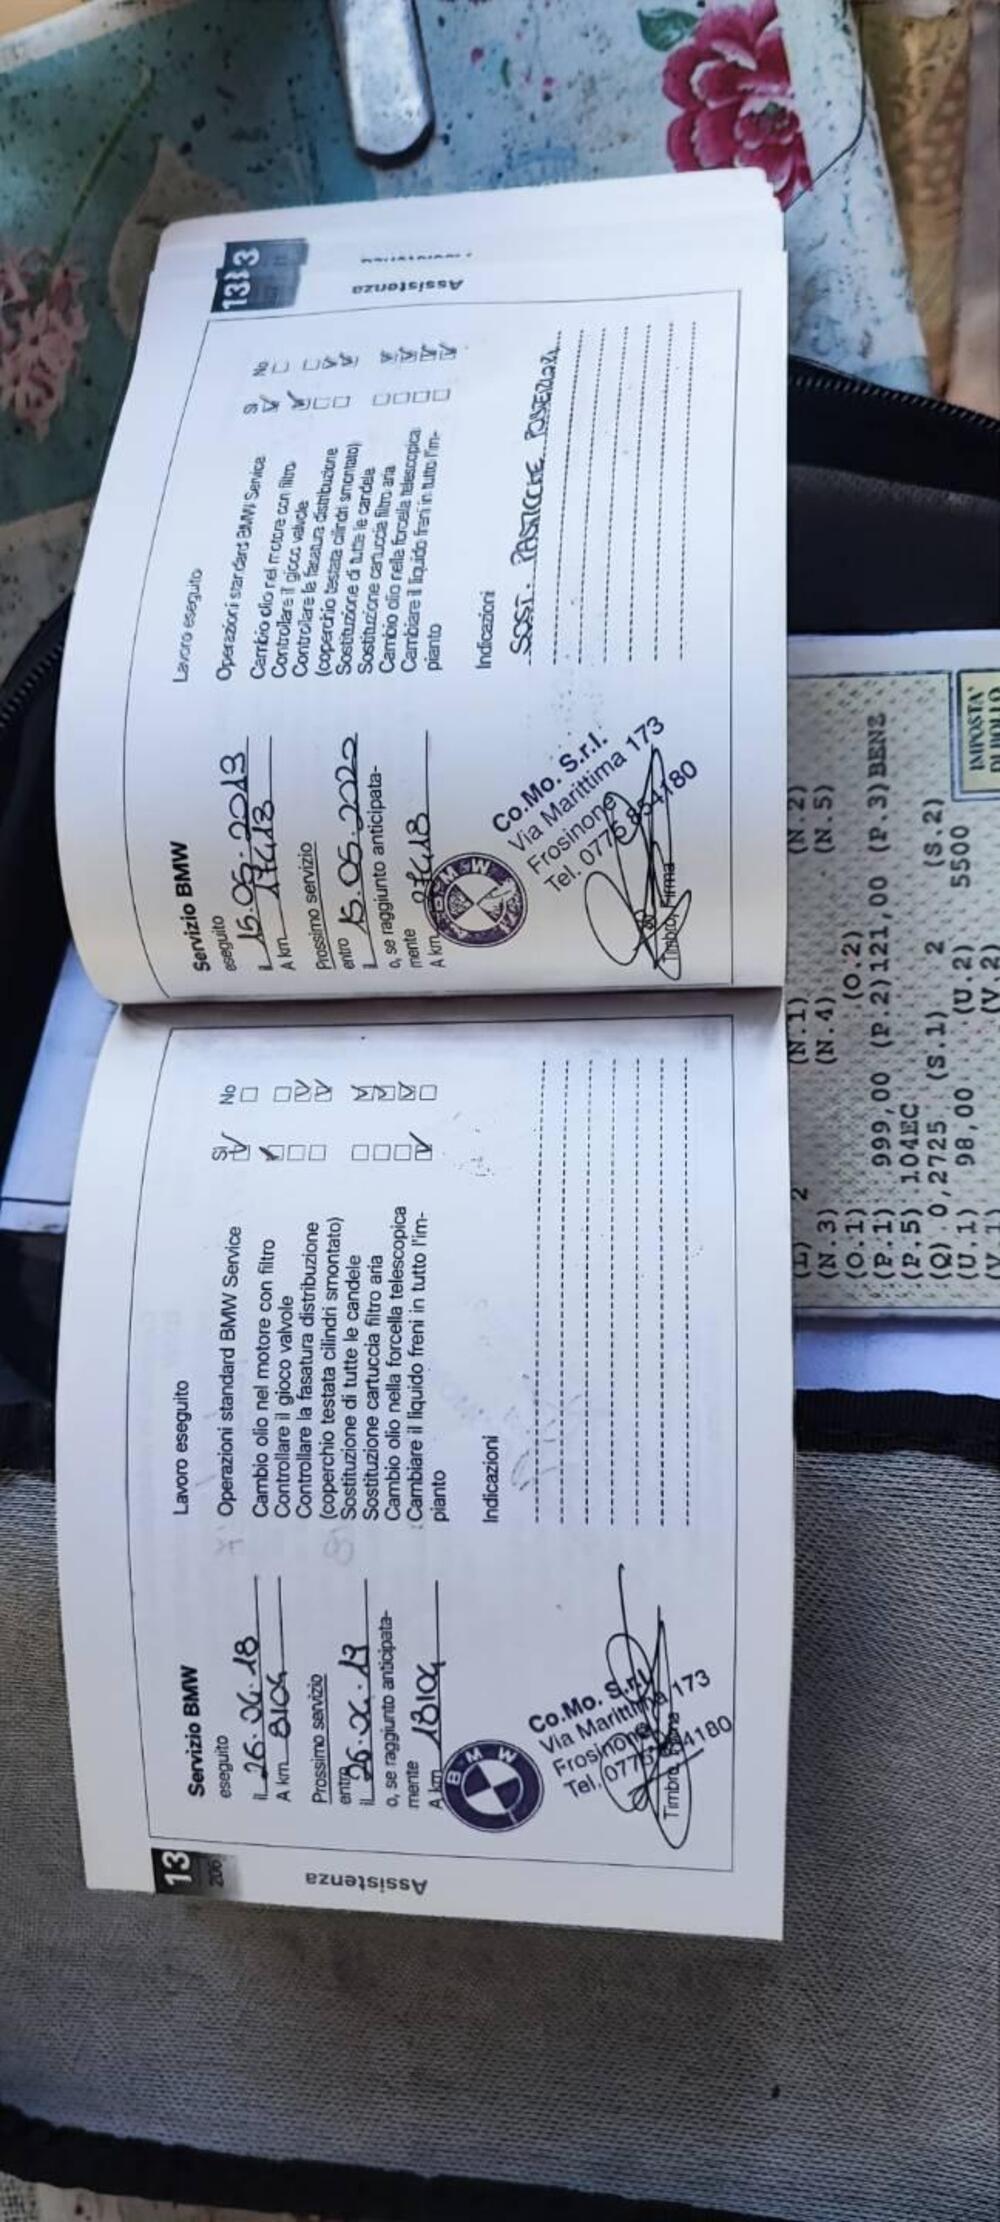 13
206
Assistenza
Servizio BMW
eseguito
il 26.06.18
A km 8104
Prossimo servizio
entro
il 26.06.19
o, se raggiunto anticipata-
mente
A km 18104
B M W
Co.Mo. S.r.l.
Via Marittima 173
Frosinone
Timbro, Firma
Lavoro eseguito
Si No
Operazioni standard BMW Service
Cambio olio nel motore con filtro
Controllare il gioco valvole
Controllare la fasatura distribuzione
(coperchio testata cilindri smontato)
Sostituzione di tutte le candele
Sostituzione cartuccia filtro aria
Cambio olio nella forcella telescopica
Cambiare il liquido freni in tutto l'im-
pianto
Indicazioni
Assistenza
Servizio BMW
eseguito
il 15.05.2013
A km 17418
Prossimo servizio
entro
il 15.05.2022
o, se raggiunto anticipata-
mente
A km
B M W
Co.Mo. S.r.l.
Via Marittima 173
Frosinone
Tel. 0775 854180
Timbro, Firma
Lavoro eseguito
Si No
Operazioni standard BMW Service
Cambio olio nel motore con filtro
Controllare il gioco valvole
Controllare la fasatura distribuzione
(coperchio testata cilindri smontato)
Sostituzione di tutte le candele
Sostituzione cartuccia filtro aria
Cambio olio nella forcella telescopica
Cambiare il liquido freni in tutto l'im-
pianto
Indicazioni
SOST. PASTICCHE POSTERIORI
(L) 2 (N.1) (N.2)
(N.3) (N.4) (N.5)
(O.1) (O.2)
(P.1) 999,00 (P.2)121,00 (P.3)BENZ
(P.5) 104EC
(Q) 0,2725 (S.1) 2 (S.2)
(U.1) 98,00 (U.2) 5500
(V.1) (V.2)
IMPOSTA
DI BOLLO